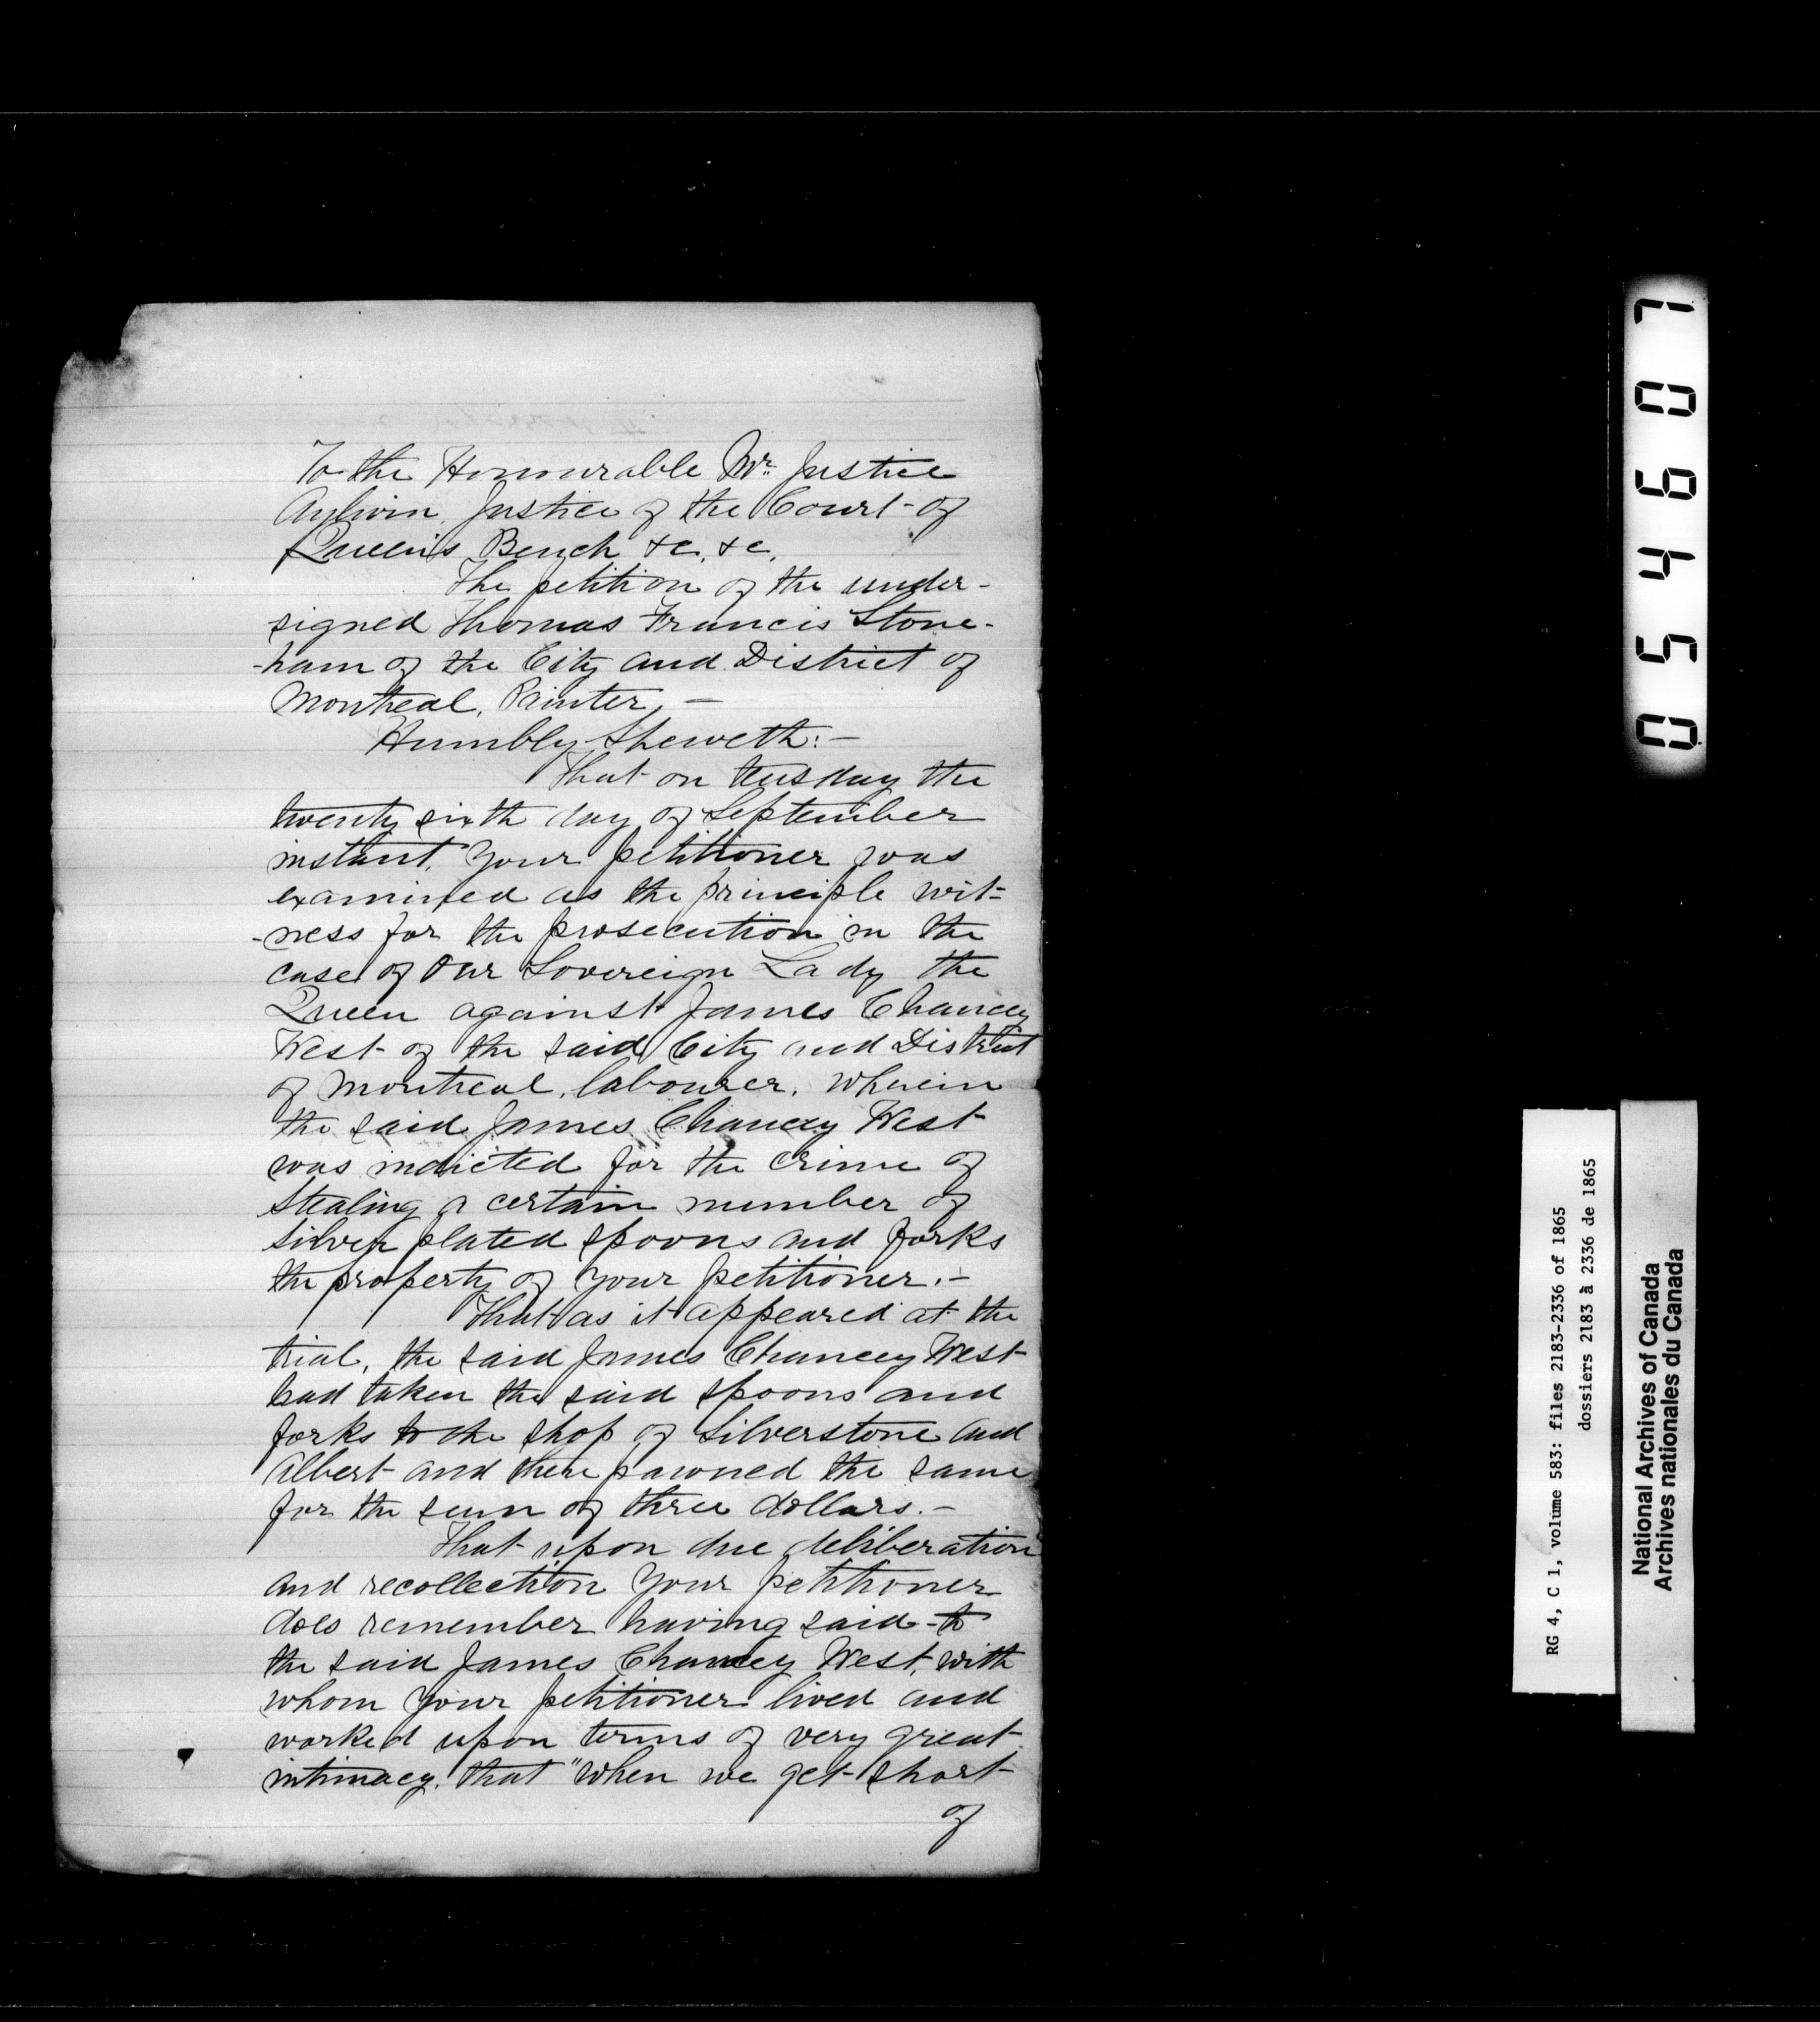 To the Honourable Mr. Justice
Aylwin, Justice of the Court of
Queen's Bench &c, &c,
The petition of the under-
signed Thomas Francis Stone-
-ham of the City and District of
Montreal, Painter, —
Humbly Sheweth: —
That on tuesday the
twenty sixth day of September
instant, Your petitioner was
examined as the principle wit-
-ness for the prosecution in the
case of Our Sovereign Lady the
Queen against James Chancey
West of the said City and District
of Montreal, labourer, wherein
the said James Chancey West
was indicted for the crime of
Stealing a certain number of
silver plated spoons and forks
the property of your petitioner. —
That as it appeared at the
trial, the said James Chancey West
had taken the said spoons and
forks to the shop of Silverstone and
Albert and there pawned the same
for the sum of three dollars. —
That upon due deliberation
and recollection Your petitioner
does remember having said to
the said James Chancey West, with
whom Your petitioner lived and
worked upon terms of very great
intimacy, that "when we get short
of
054607
RG 4, C 1, volume 583: files 2183-2336 of 1865
dossiers 2183 à 2336 de 1865
National Archives of Canada
Archives nationales du Canada